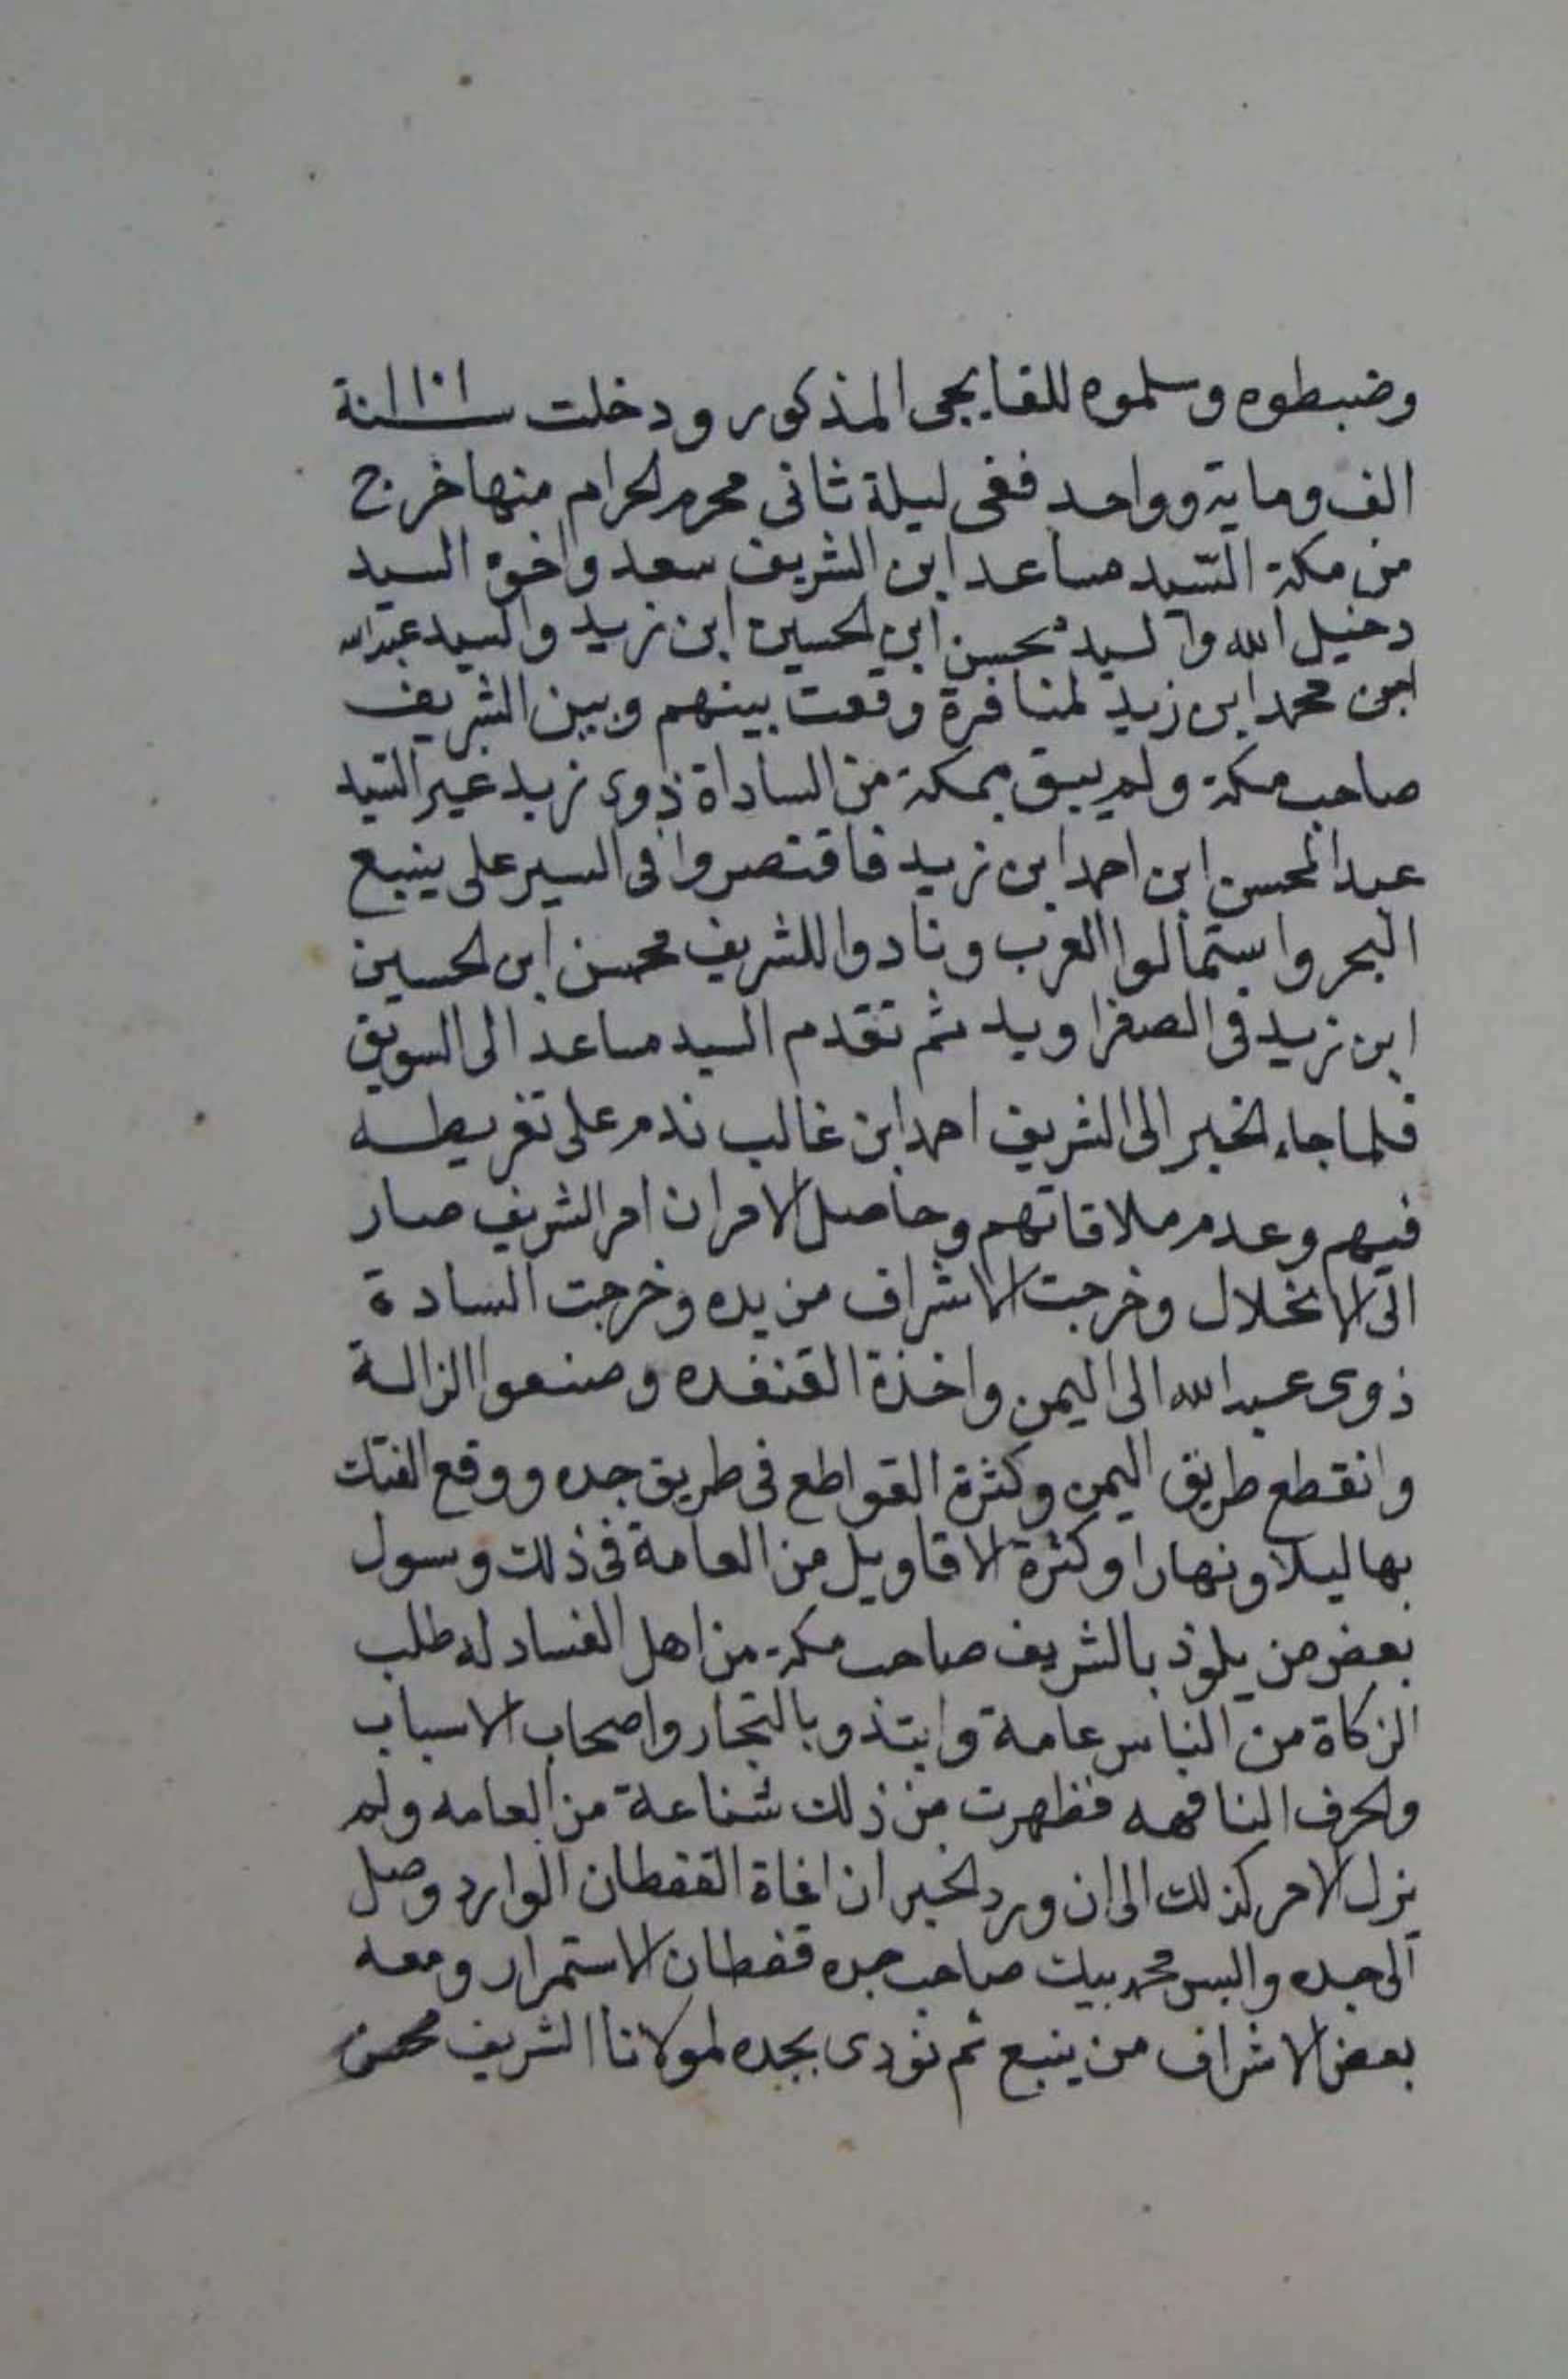 وضبطوه وسلموه للقابجى المذكور ودخلت سنة ١١٠١
الف وماية وواحد ففى ليلة ثانى محرم الحرام منها خرج
من مكة السيد مساعد ابن الشريف سعد واخوه السيد
دخيل الله والسيد محسن ابن الحسين ابن زيد والسيد عبدالله
ابن محمد ابن زيد لمنافرة وقعت بينهم وبين الشريف
صاحب مكة ولم يبق بمكة من الساداة ذوى زيد غير السيد
عبد المحسن ابن احمد ابن زيد فاقتصروا فى السير على ينبع
البحر واستمالوا العرب ونادوا للشريف محسن ابن الحسين
ابن زيد فى الصفرا ويد ثم تقدم السيد مساعد الى السويق
فلما جاء الخبر الى الشريف احمد ابن غالب ندم على تفريطه
فيهم وعدم ملاقاتهم وحاصل الامر ان امر الشريف صار
الى الانحلال وخرجت الاشراف من يده وخرجت السادة
ذوى عبد الله الى اليمن واخذة القنفده وصنعوا الزالة
وانقطع طريق اليمن وكثرة القواطع فى طريق جده ووقع الفتك
بها ليلا ونهارا وكثرة الاقاويل من العامة فى ذلك وسول
بعض من يلوذ بالشريف صاحب مكة من اهل الفساد له طلب
الزكاة من الناس عامة وابتذو بالتجار واصحاب الاسباب
والحرف النافهه فظهرت من ذلك شناعة من العامه ولم
يزل الامر كذلك الى ان ورد الخبر ان اغاة القفطان الوارد وصل
الى جده والبس محمد بيك صاحب جده قفطان الاستمرار ومعه
بعض الاشراف من ينبع ثم نودى بجده لمولانا الشريف محسن